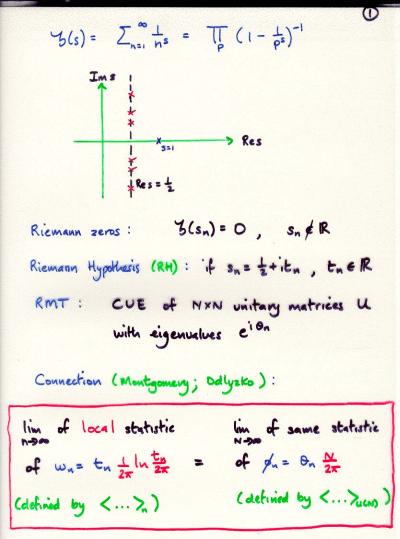 ①
ζ(s) = ∑_{n=1}^{∞} 1/n^s = ∏_p (1 - 1/p^s)^{-1}
Im s
Re s
s=1
Re s = 1/2
Riemann zeros : ζ(s_n) = 0 , s_n ∉ ℝ
Riemann Hypothesis (RH) : if s_n = 1/2 + i t_n , t_n ∈ ℝ
RMT : CUE of N×N unitary matrices U
with eigenvalues e^{iθ_n}
Connection (Montgomery; Odlyzko) :
lim_{n→∞} of local statistic
of w_n = t_n 1/2π ln t_n/2π
(defined by <...>_n)
=
lim_{N→∞} of same statistic
of φ_n = θ_n N/2π
(defined by <...>_{U(N)})